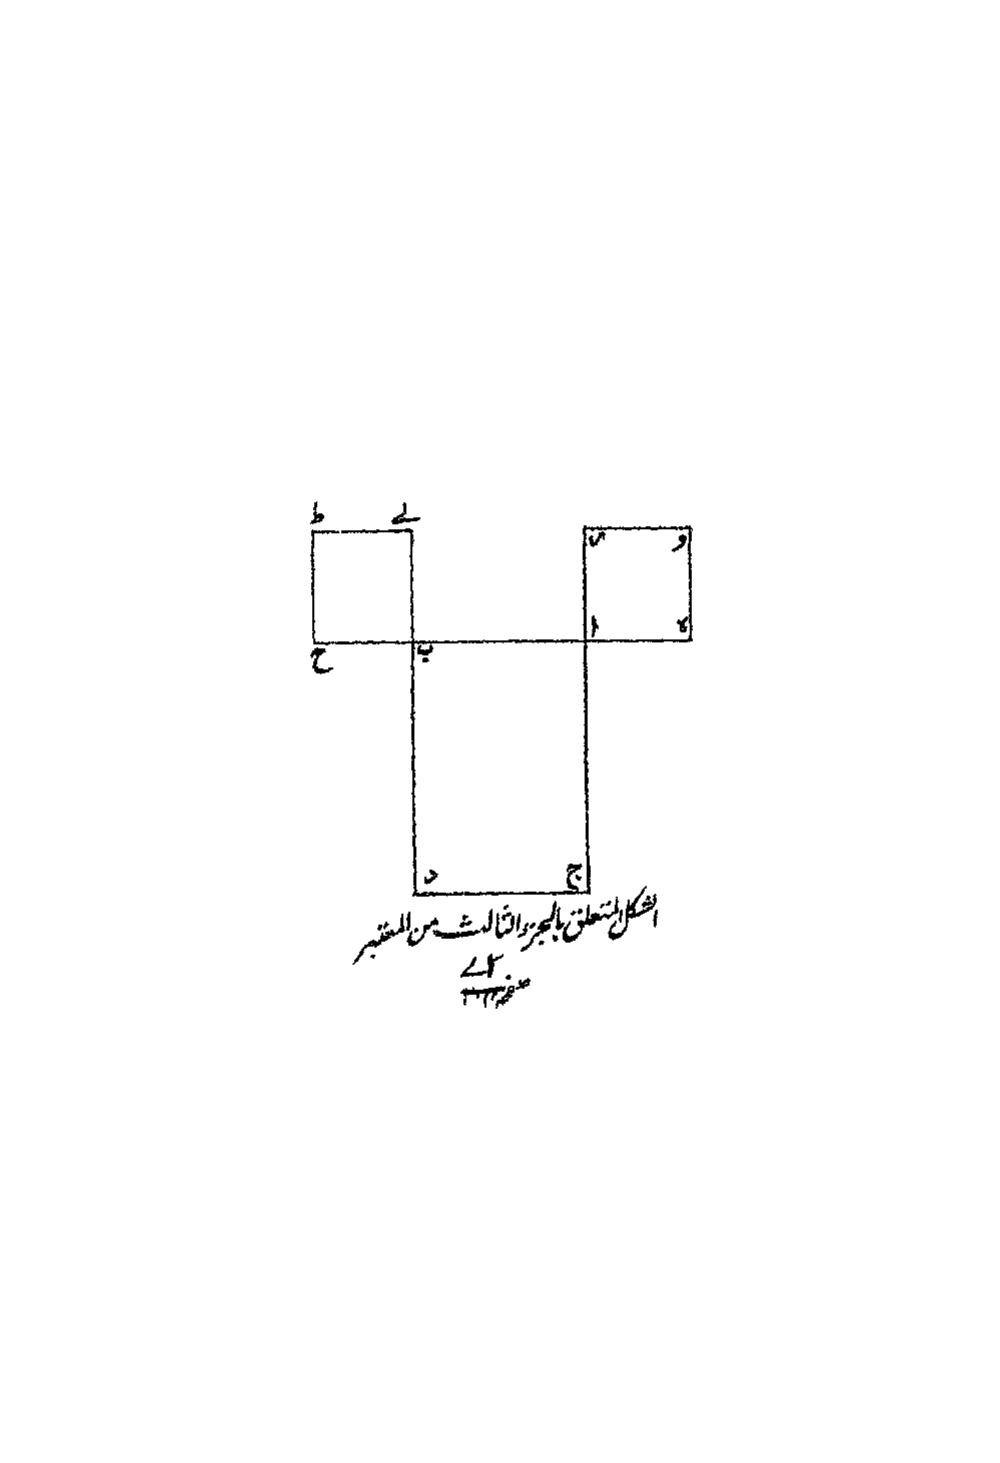 ط ے و ں
ا ه
ح ب
د ج
الشكل المتعلق بالجزء الثالث من المعتبر
صفحه